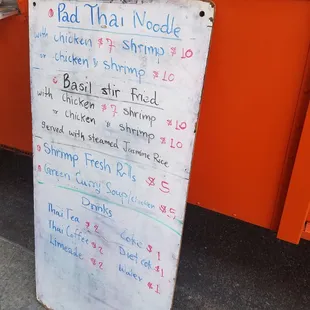 Pad Thai Noodle
with chicken $7 shrimp $10
or chicken & shrimp $10
Basil stir fried
with chicken $7 shrimp $10
or chicken & shrimp $10
Served with steamed Jasmine Rice
Shrimp Fresh Rolls $5
Green Curry Soup/chicken $5
Drinks
Thai Tea $2 Coke $1
Thai Coffee $2 Diet coke $1
Limeade $2 Water $1